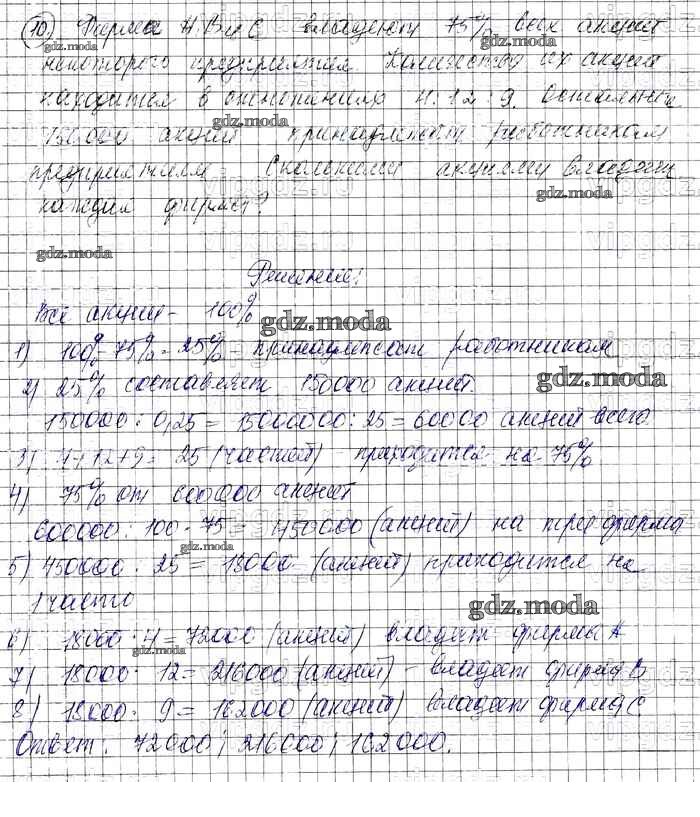 10) Фирмы А, В и С владеют 75% всех акций
некоторого предприятия. Количества их акций
находится в отношениях 4:12:9. Остальные
150.000 акций принадлежат работникам
предприятия. Сколькими акциями владеет
каждая фирма?
Решение:
Все акции - 100%
1) 100% - 75% = 25% - принадлежат работникам
2) 25% составляет 150000 акций.
150000 : 0,25 = 15000000 : 25 = 60000 акций всего
3) 4+12+9 = 25 (частей) - приходится на 75%
4) 75% от 600000 акций
600000 : 100 · 75 = 450000 (акций) на трёх фирмы
5) 450000 : 25 = 18000 (акций) приходится на
1 часть
6) 18000 · 4 = 72000 (акций) владеет фирмы А
7) 18000 · 12 = 216000 (акций) - владеет фирма В
8) 18000 · 9 = 162000 (акций) владеет фирма С
Ответ: 72000; 216000; 162000.
gdz.moda
vipgdz